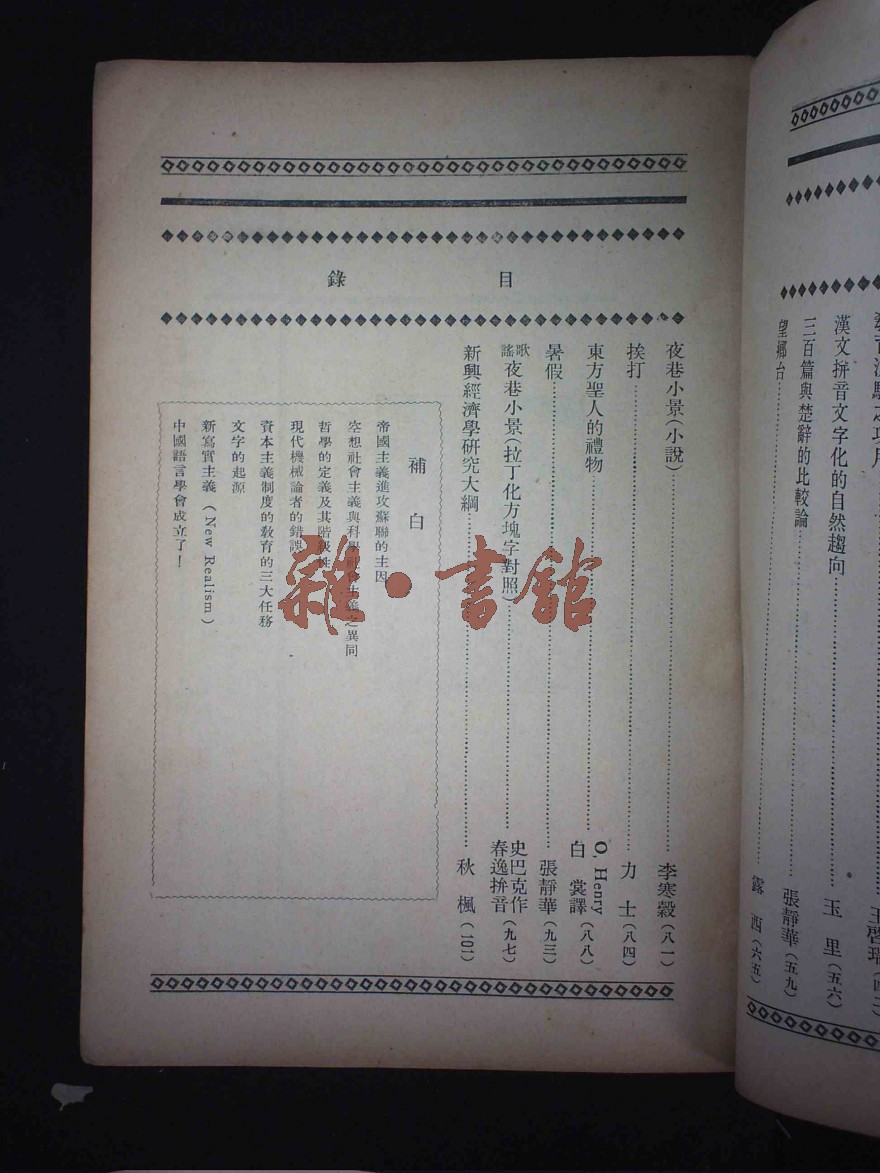 漢文拼音文字化的自然趨向……玉里(五六)
三百篇與楚辭的比較論……張靜華(五九)
望鄉台……露西(六五)
目錄
夜巷小景(小說)……李寒穀(八一)
挨打……力士(八四)
東方聖人的禮物……O. Henry 白裳譯(八八)
暑假……張靜華(九三)
歌謠 夜巷小景(拉丁化方塊字對照)……史巴克作 春逸拚音(九七)
新興經濟學研究大綱……秋楓(101)
補白
帝國主義進攻蘇聯的主因
空想社會主義與科學社會主義之異同
哲學的定義及其階級性
現代機械論者的錯誤
資本主義制度的教育的三大任務
文字的起源
新寫實主義(New Realism)
中國語言學會成立了!
雜·書館